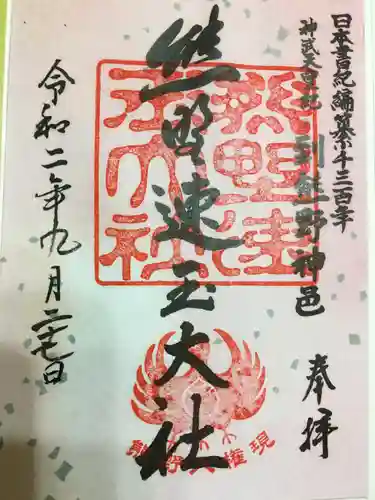 日本書紀編纂千三百年
神武天皇紀 到熊野神邑
奉拝
熊野速玉大社
熊野速玉大社
令和二年九月二七日